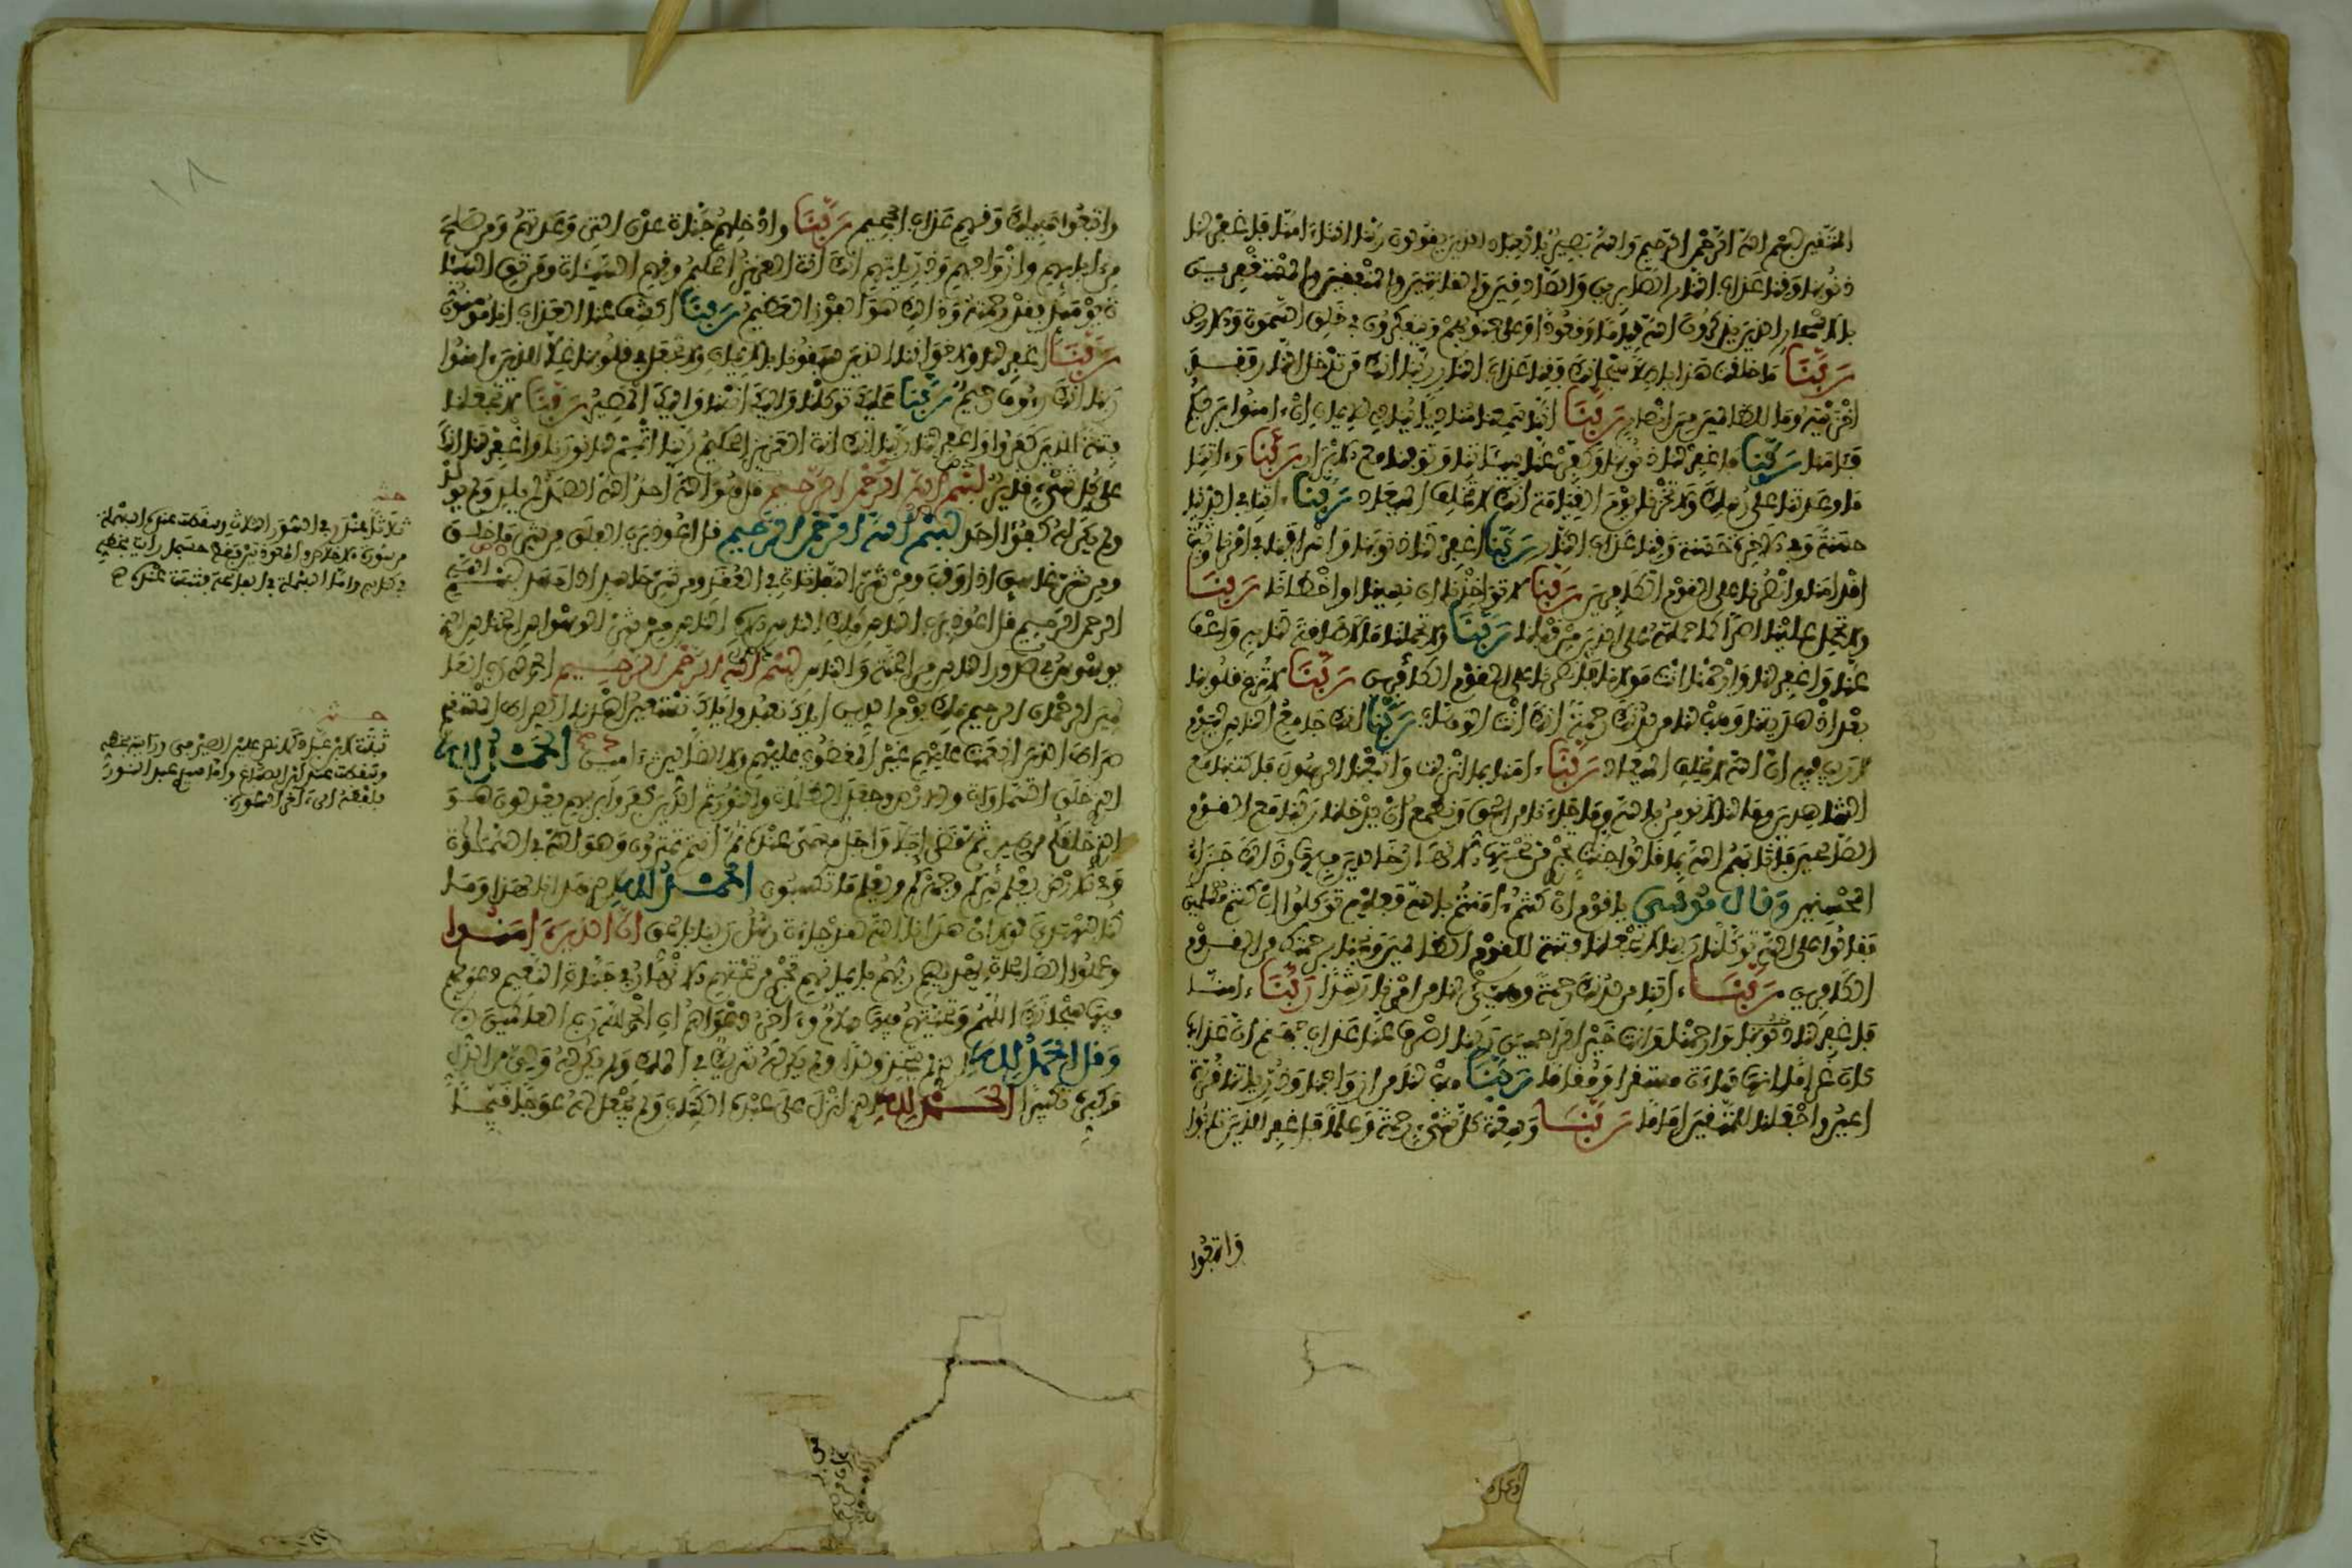 المتقين بسم الله الرحمن الرحيم والله بصير بالعباد الذين يقولون ربنا اننا ءامنا فاغفر لنا
ذنوبنا وقنا عذاب النار الصابرين والصادقين والقانتين والمنفقين والمستغفرين
بالاسحار الذين يذكرون الله قياما وقعودا وعلى جنوبهم ويتفكرون في خلق السموات والارض
رَبَّنَا ما خلقت هذا باطلا سبحانك وقنا عذاب النار ربنا انك من تدخل النار فقد
اخزيته وما للظالمين من انصار رَبَّنَا اننا سمعنا مناديا ينادي للايمان ان ءامنوا بربكم
فئامنا رَبَّنَا فاغفر لنا ذنوبنا وكفر عنا سيئاتنا وتوفنا مع الابرار رَبَّنَا وءاتنا
ما وعدتنا على رسلك ولا تخزنا يوم القيامة انك لا تخلف الميعاد رَبَّنَا ءاتنا في الدنيا
حسنة وفي الاخرة حسنة وقنا عذاب النار رَبَّنَا اغفر لنا ذنوبنا واسرافنا في امرنا وثبت
اقدامنا وانصرنا على القوم الكافرين رَبَّنَا لا تؤاخذنا ان نسينا او اخطأنا رَبَّنَا
ولا تحمل علينا اصرا كما حملته على الذين من قبلنا رَبَّنَا ولا تحملنا ما لا طاقة لنا به واعف
عنا واغفر لنا وارحمنا انت مولانا فانصرنا على القوم الكافرين رَبَّنَا لا تزغ قلوبنا
بعد اذ هديتنا وهب لنا من لدنك رحمة انك انت الوهاب رَبَّنَا انك جامع الناس ليوم
لا ريب فيه ان الله لا يخلف الميعاد رَبَّنَا ءامنا بما انزلت واتبعنا الرسول فاكتبنا مع
الشاهدين وما لنا لا نومن بالله وما جاءنا من الحق ونطمع ان يدخلنا ربنا مع القوم
الصالحين فاثابهم الله بما قالوا جنات تجري من تحتها الانهار خالدين فيها وذلك جزاء
المحسنين وقال موسى يا قوم ان كنتم ءامنتم بالله فعليه توكلوا ان كنتم مسلمين
فقالوا على الله توكلنا ربنا لا تجعلنا فتنة للقوم الظالمين ونجنا برحمتك من القوم
الكافرين رَبَّنَا ءاتنا من لدنك رحمة وهيئ لنا من امرنا رشدا رَبَّنَا ءامنا
فاغفر لنا ذنوبنا وارحمنا وانت خير الراحمين ربنا اصرف عنا عذاب جهنم ان عذابها
كان غراما انها ساءت مستقرا ومقاما رَبَّنَا هب لنا من ازواجنا وذرياتنا قرة
اعين واجعلنا للمتقين اماما رَبَّنَا وسعت كل شيء رحمة وعلما فاغفر للذين تابوا
واتبعوا
واتبعوا سبيلك وقهم عذاب الجحيم رَبَّنَا وادخلهم جنات عدن التي وعدتهم ومن صلح
من ءابائهم وازواجهم وذرياتهم انك انت العزيز الحكيم وقهم السيئات ومن تق السيئا
ت يومئذ فقد رحمته وذلك هو الفوز العظيم رَبَّنَا اكشف عنا العذاب انا مومنون
رَبَّنَا اغفر لنا ولاخواننا الذين سبقونا بالايمان ولا تجعل في قلوبنا غلا للذين ءامنوا
ربنا انك رءوف رحيم رَبَّنَا عليك توكلنا واليك انبنا واليك المصير رَبَّنَا لا تجعلنا
فتنة للذين كفروا واغفر لنا ربنا انك انت العزيز الحكيم ربنا اتمم لنا نورنا واغفر لنا انك
على كل شيء قدير بسم الله الرحمن الرحيم قل هو الله احد الله الصمد لم يلد ولم يولد
ولم يكن له كفؤا احد بسم الله الرحمن الرحيم قل اعوذ برب الفلق من شر ما خلق
ومن شر غاسق اذا وقب ومن شر النفاثات في العقد ومن شر حاسد اذا حسد بسم الله
الرحمن الرحيم قل اعوذ برب الناس ملك الناس اله الناس من شر الوسواس الخناس الذي
يوسوس في صدور الناس من الجنة والناس بسم الله الرحمن الرحيم الحمد لله رب العا
لمين الرحمن الرحيم ملك يوم الدين اياك نعبد واياك نستعين اهدنا الصراط المستقيم
صراط الذين انعمت عليهم غير المغضوب عليهم ولا الضالين ءامين الحمد لله
الذي خلق السماوات والارض وجعل الظلمات والنور ثم الذين كفروا بربهم يعدلون هو
الذي خلقكم من طين ثم قضى اجلا واجل مسمى عنده ثم انتم تمترون وهو الله في السماوات
وفي الارض يعلم سركم وجهركم ويعلم ما تكسبون الحمد لله الذي هدانا لهذا وما
كنا لنهتدي لولا ان هدانا الله لقد جاءت رسل ربنا بالحق ان الذين ءامنوا
وعملوا الصالحات يهديهم ربهم بايمانهم تجري من تحتهم الانهار في جنات النعيم دعواهم
فيها سبحانك اللهم وتحيتهم فيها سلام وءاخر دعواهم ان الحمد لله رب العالمين
وقل الحمد لله الذي لم يتخذ ولدا ولم يكن له شريك في الملك ولم يكن له ولي من الذل
وكبره تكبيرا الحمد لله الذي انزل على عبده الكتاب ولم يجعل له عوجا قيما